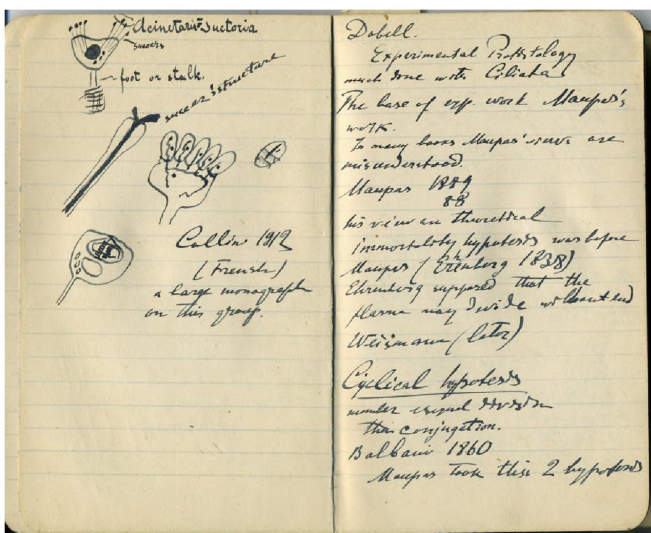 Acinetaria-Suctoria
suckers
foot or stalk.
sucker's structure
Collin 1912
(French)
a large monograph
on this group.
Dobell.
Experimental Protistology
much done with Ciliata
The base of exp. work Maupas's
work.
In many books Maupas' views are
misunderstood.
Maupas 1889
88
his view on theoretical
immortality hypotesis was before
Maupas (Erhenberg 1838)
Ehrenberg supposed that the
plasma may divide without end
Weismann (later)
Cyclical hypotesis
number division
then conjugation.
Balbani 1860
Maupas took this 2 hypotesis